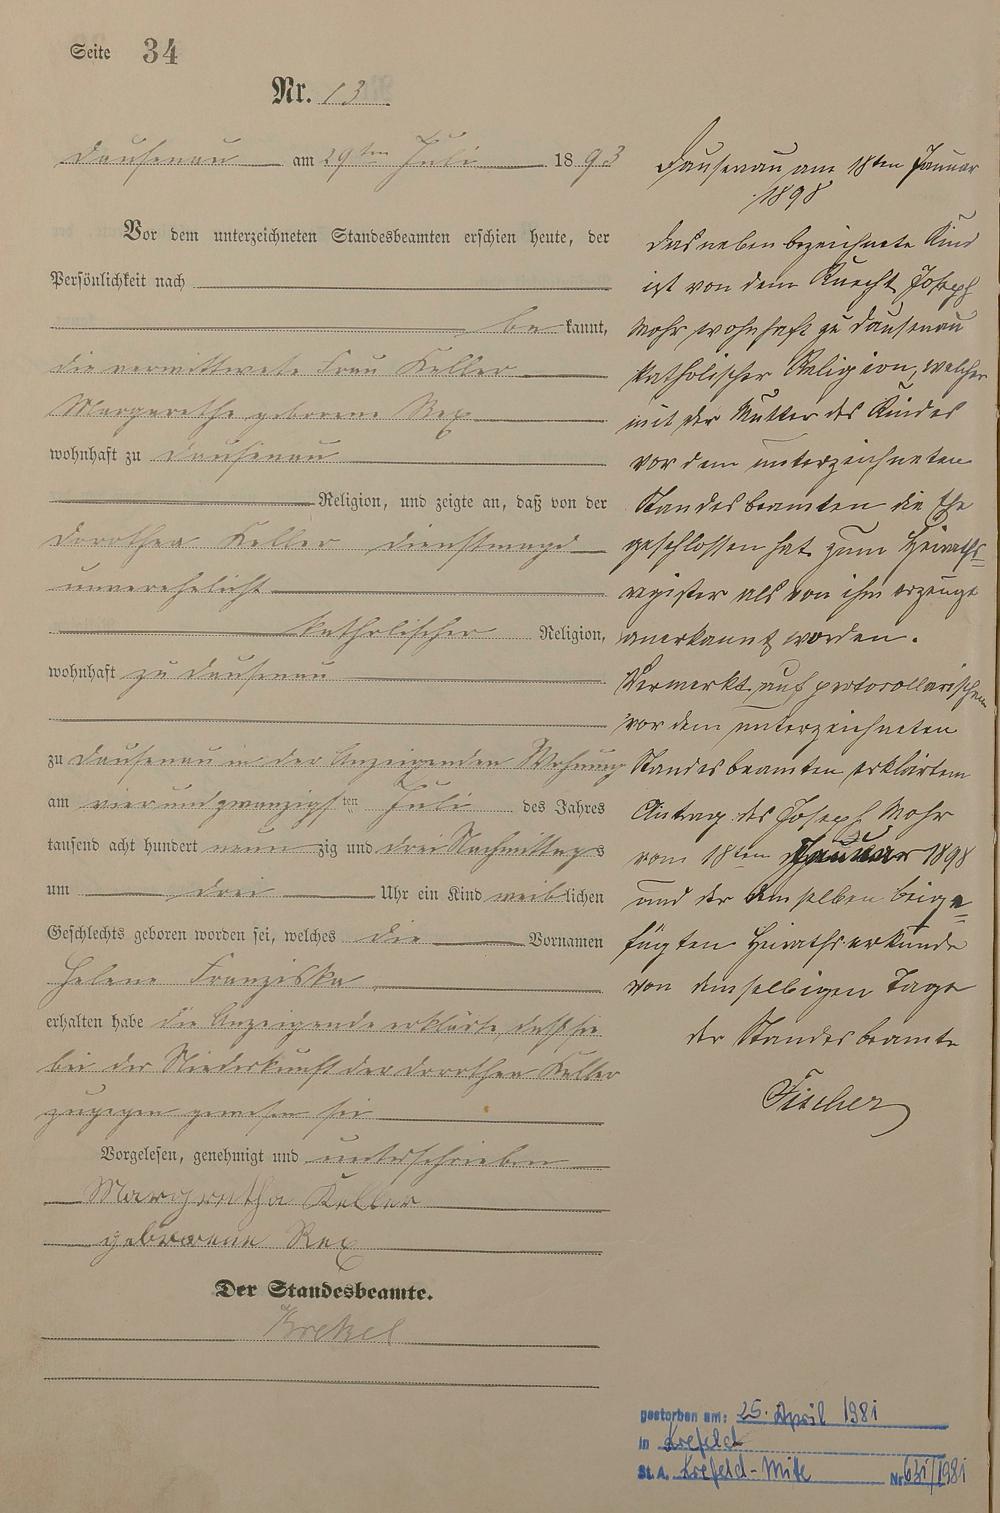 Seite 34
Nr. 13
Dausenau am 29ten Juli 1893
Vor dem unterzeichneten Standesbeamten erschien heute, der
Persönlichkeit nach
be kannt,
die verwittwete Frau Keller
Margarethe geborene Rex
wohnhaft zu Dausenau
Religion, und zeigte an, daß von der
Dorothea Keller Dienstmagd
unverehelicht
katholischer Religion,
wohnhaft zu Dausenau
zu Dausenau in der Anzeigenden Wohnung
am vierundzwanzigsten Juli des Jahres
tausend acht hundert neunzig und drei Nachmittags
um drei Uhr ein Kind weiblichen
Geschlechts geboren worden sei, welches die Vornamen
Helene Franziska
erhalten habe die Anzeigende erklärte, daß sie
bei der Niederkunft der Dorothea Keller
zugegen gewesen sei
Vorgelesen, genehmigt und unterschrieben
Margretha Keller
geborene Rex
Der Standesbeamte.
Krekel
Dausenau am 18ten Januar
1898
Das neben bezeichnete Kind
ist von dem Knecht Joseph
Mohr wohnhaft zu Dausenau
katholischer Religion, welcher
mit der Mutter des Kindes
vor dem unterzeichneten
Standesbeamten die Ehe
geschlossen hat zum Heiraths-
register als von ihm erzeugt
anerkannt worden.
Vermerkt auf protocollarischen
vor dem unterzeichneten
Standesbeamten erklärtem
Antrag des Joseph Mohr
vom 18ten Januar 1898
und der demselben beige=
fügten Heirathsurkunde
von demselbigen Tage
der Standesbeamte
Fischer
gestorben am: 25. April 1981
in Krefeld
St. A. Krefeld-Mitte Nr. 631/1981